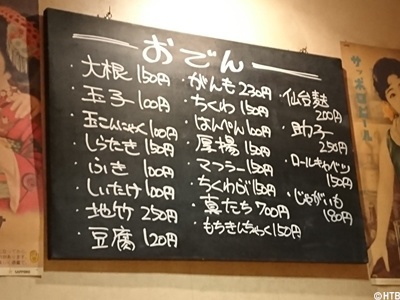 おでん
・大根 150円
・玉子 100円
・玉こんにゃく 100円
・しらたき 150円
・ふき 100円
・しいたけ 100円
・地竹 250円
・豆腐 120円
・がんも 230円
・ちくわ 150円
・はんぺん 100円
・厚揚 150円
・マフラー 150円
・ちくわぶ 150円
・真たち 700円
・もちきんちゃく 150円
・仙台麩
200円
・助子
250円
・ロールキャベツ
150円
・じゃがいも
180円
サッポロビール
©HTB